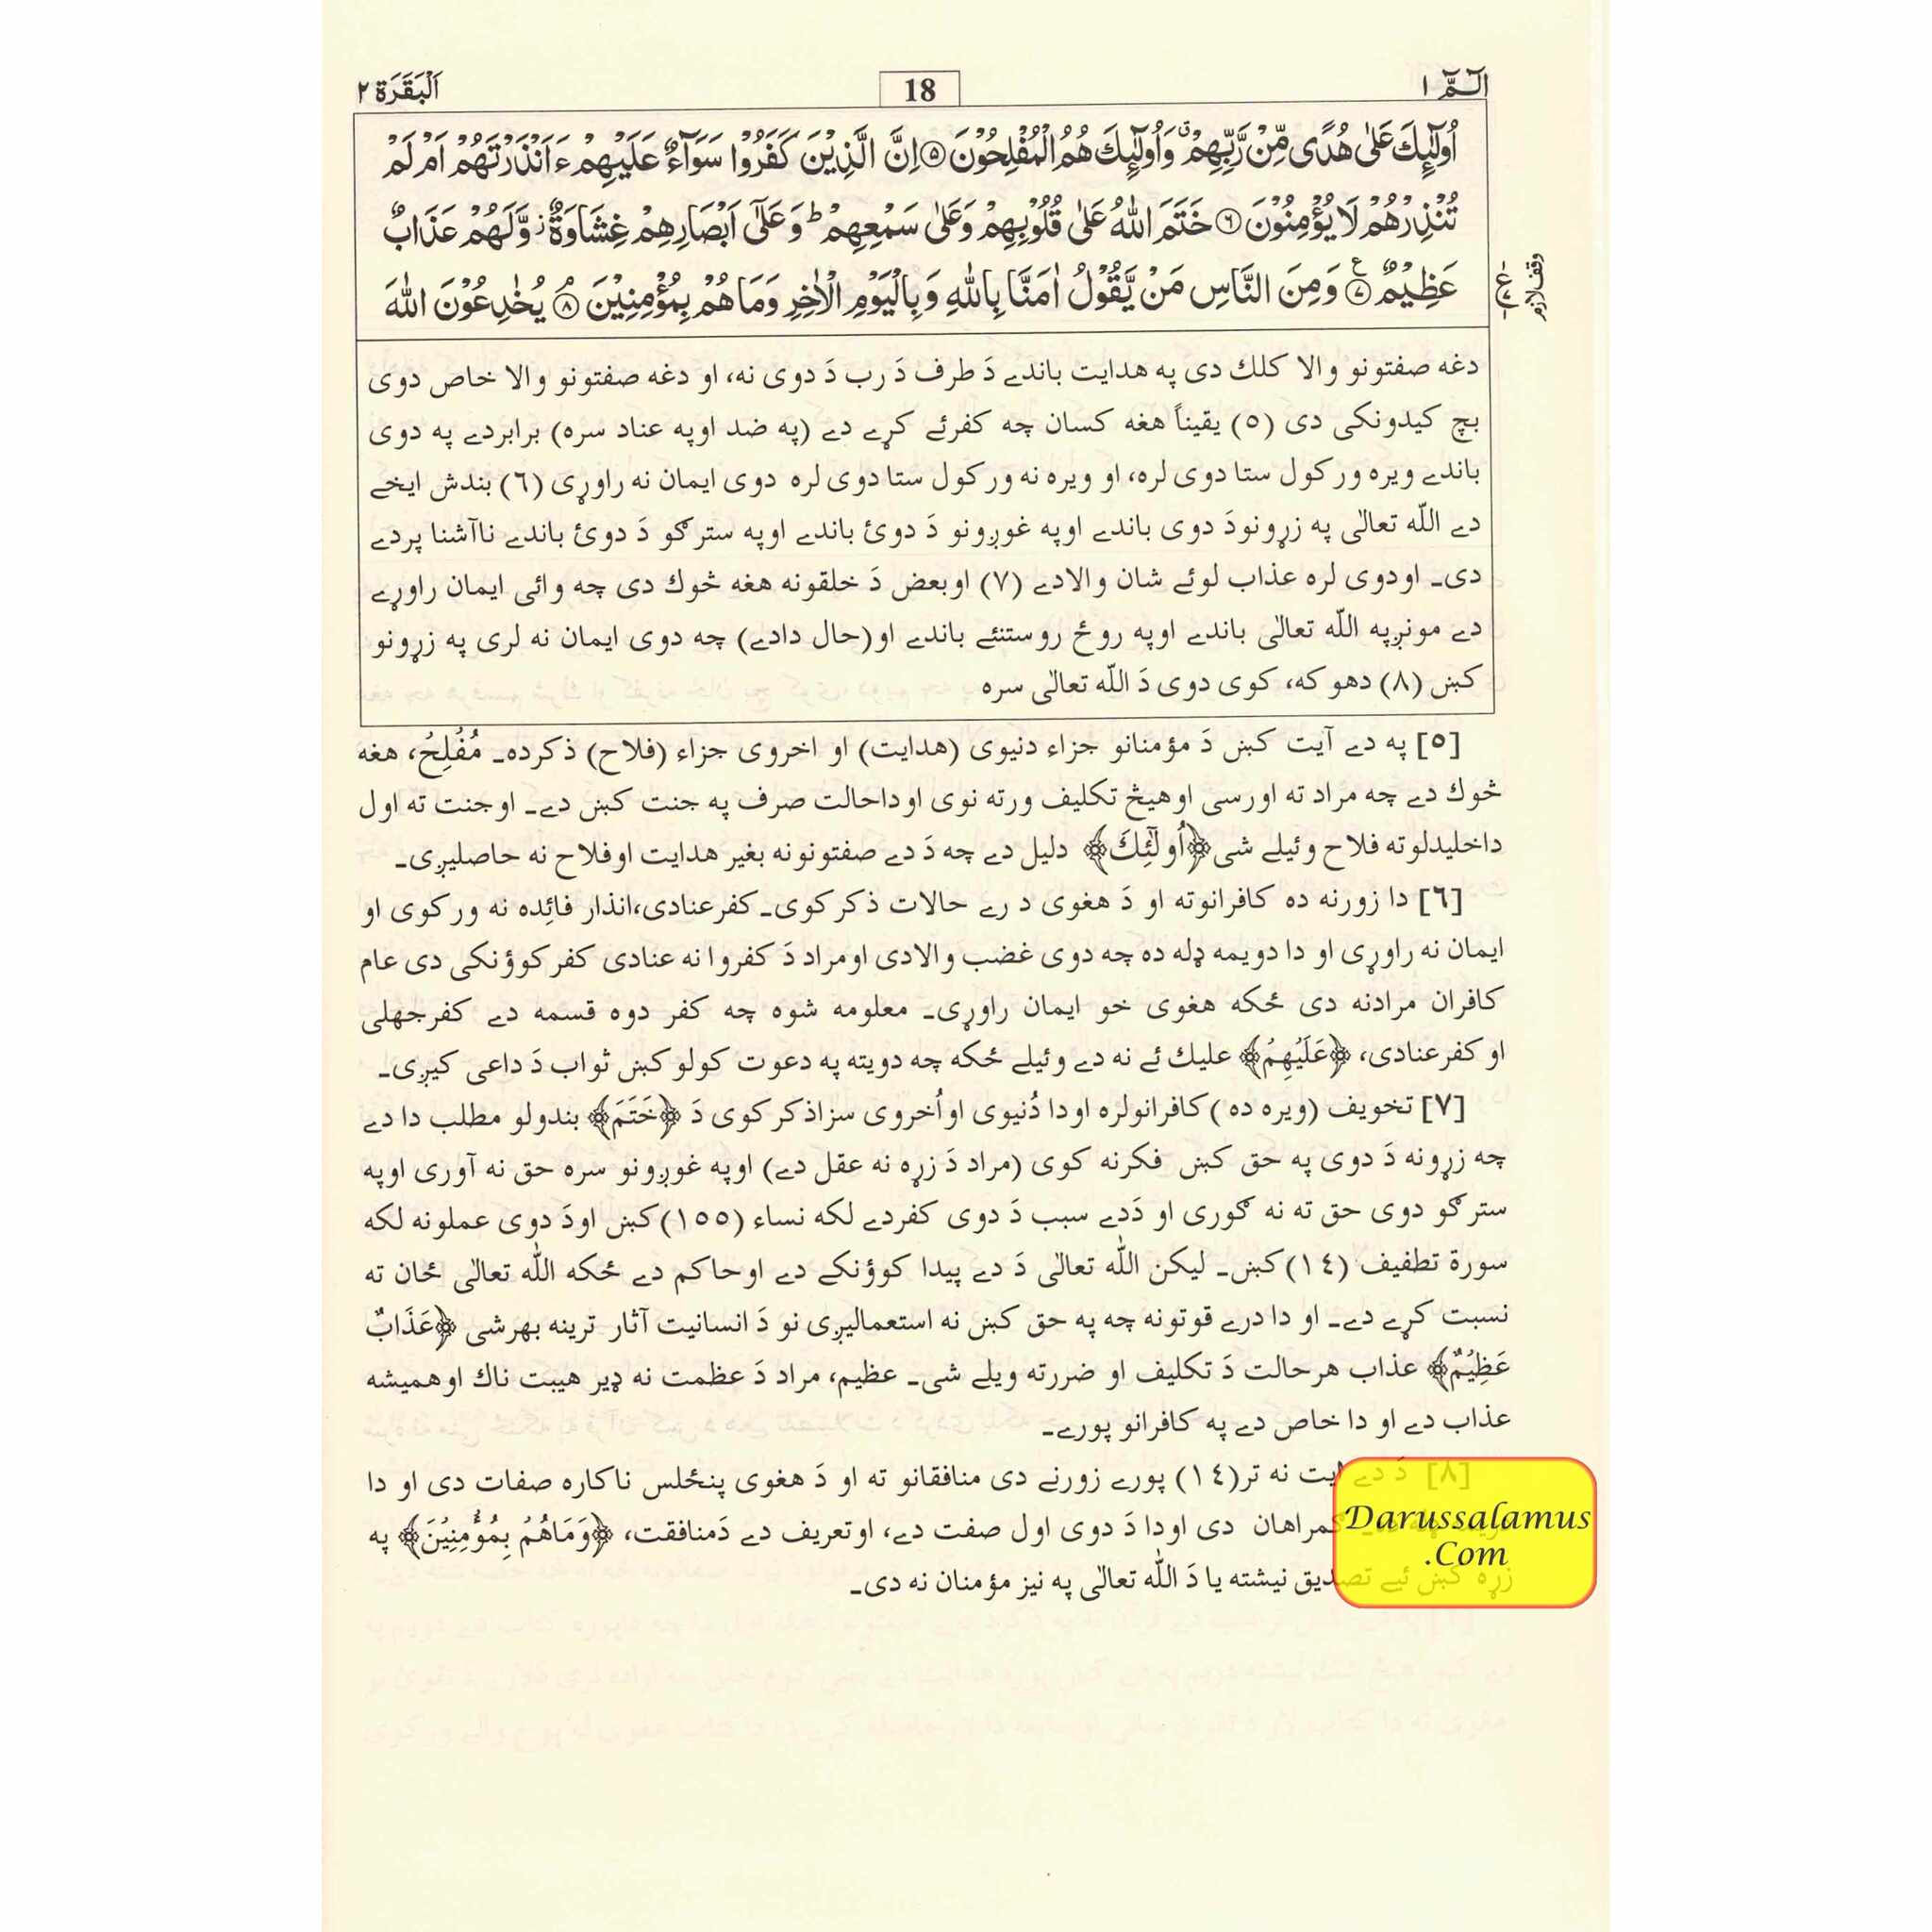 الٓمّٓ ١
18
اَلْبَقَرَة ٢
اُولٰٓئِكَ عَلٰى هُدًى مِّنْ رَّبِّهِمْ ۙ وَاُولٰٓئِكَ هُمُ الْمُفْلِحُوْنَ ﴿٥﴾ اِنَّ الَّذِيْنَ كَفَرُوْا سَوَآءٌ عَلَيْهِمْ ءَاَنْذَرْتَهُمْ اَمْ لَمْ
تُنْذِرْهُمْ لَا يُؤْمِنُوْنَ ﴿٦﴾ خَتَمَ اللّٰهُ عَلٰى قُلُوْبِهِمْ وَعَلٰى سَمْعِهِمْ ؕ وَعَلٰٓى اَبْصَارِهِمْ غِشَاوَةٌ ؗ وَّلَهُمْ عَذَابٌ
عَظِيْمٌ ﴿٧﴾ وَمِنَ النَّاسِ مَنْ يَّقُوْلُ اٰمَنَّا بِاللّٰهِ وَبِالْيَوْمِ الْاٰخِرِ وَمَا هُمْ بِمُؤْمِنِيْنَ ﴿٨﴾ يُخٰدِعُوْنَ اللّٰهَ
وقف لازم
دغه صفتونو والا كلك دى په هدايت باندے دَ طرف دَ رب دَ دوى نه، او دغه صفتونو والا خاص دوى
بچ كيدونكى دى (٥) يقيناً هغه كسان چه كفرئے كړے دے (په ضد اوپه عناد سره) برابردے په دوى
باندے ويره وركول ستا دوى لره، او ويره نه وركول ستا دوى لره دوى ايمان نه راوړى (٦) بندش ايخے
دے اللّه تعالٰى په زړونودَ دوى باندے اوپه غوږونو دَ دوئ باندے اوپه سترګو دَ دوئ باندے ناآشنا پردے
دى۔ اودوى لره عذاب لوئے شان والادے (٧) اوبعض دَ خلقونه هغه څوك دى چه وائى ايمان راوړے
دے مونږپه اللّه تعالٰى باندے اوپه روځ روستنئے باندے او(حال دادے) چه دوى ايمان نه لرى په زړونو
كښ (٨) دهوكه، كوى دوى دَ اللّه تعالٰى سره
[٥] په دے آيت كښ دَ مؤمنانو جزاء دنيوى (هدايت) او اخروى جزاء (فلاح) ذكرده۔ مُفْلِحُ، هغه
څوك دے چه مراد ته اورسى اوهيڅ تكليف ورته نوى اوداحالت صرف په جنت كښ دے۔ اوجنت ته اول
داخليدلوته فلاح وئيلے شى ﴿اُولٰٓئِكَ﴾ دليل دے چه دَ دے صفتونونه بغير هدايت اوفلاح نه حاصليږى۔
[٦] دا زورنه ده كافرانوته او دَ هغوى درے حالات ذكركوى۔ كفرعنادى،انذار فائِده نه وركوى او
ايمان نه راوړى او دا دويمه ډله ده چه دوى غضب والادى اومراد دَ كفروا نه عنادى كفركوؤنكى دى عام
كافران مرادنه دى ځكه هغوى خو ايمان راوړى۔ معلومه شوه چه كفر دوه قسمه دے كفرجهلى
او كفرعنادى، ﴿عَلَيْهِمْ﴾ عليك ئے نه دے وئيلے ځكه چه دويته په دعوت كولو كښ ثواب دَ داعى كيږى۔
[٧] تخويف (ويره ده) كافرانولره اودا دُنيوى اواُخروى سزاذكركوى دَ ﴿خَتَمَ﴾ بندولو مطلب دا دے
چه زړونه دَ دوى په حق كښ فكرنه كوى (مراد دَ زړه نه عقل دے) اوپه غوږونو سره حق نه آورى اوپه
سترګو دوى حق ته نه ګورى او دَدے سبب دَ دوى كفردے لكه نساء (١٥٥) كښ اودَ دوى عملونه لكه
سورة تطفيف (١٤) كښ۔ ليكن اللّه تعالٰى دَ دے پيدا كوؤنكے دے اوحاكم دے ځكه اللّه تعالٰى ځان ته
نسبت كړے دے۔ او دا درے قوتونه چه په حق كښ نه استعماليږى نو دَ انسانيت آثار ترينه بهرشى ﴿عَذَابٌ
عَظِيْمٌ﴾ عذاب هرحالت دَ تكليف او ضررته ويلے شى۔ عظيم، مراد دَ عظمت نه ډير هيبت ناك اوهميشه
عذاب دے او دا خاص دے په كافرانو پورے۔
[٨] دَ دے ايت نه تر(١٤) پورے زورنے دى منافقانو ته او دَ هغوى پنځلس ناكاره صفات دى او دا
ګمراهان دى اودا دَ دوى اول صفت دے، اوتعريف دے دَمنافقت، ﴿وَمَاهُمْ بِمُؤْمِنِيْنَ﴾ په
زړه كښ ئيے تصديق نيشته يا دَ اللّه تعالٰى په نيز مؤمنان نه دى۔
Darussalamus
.Com